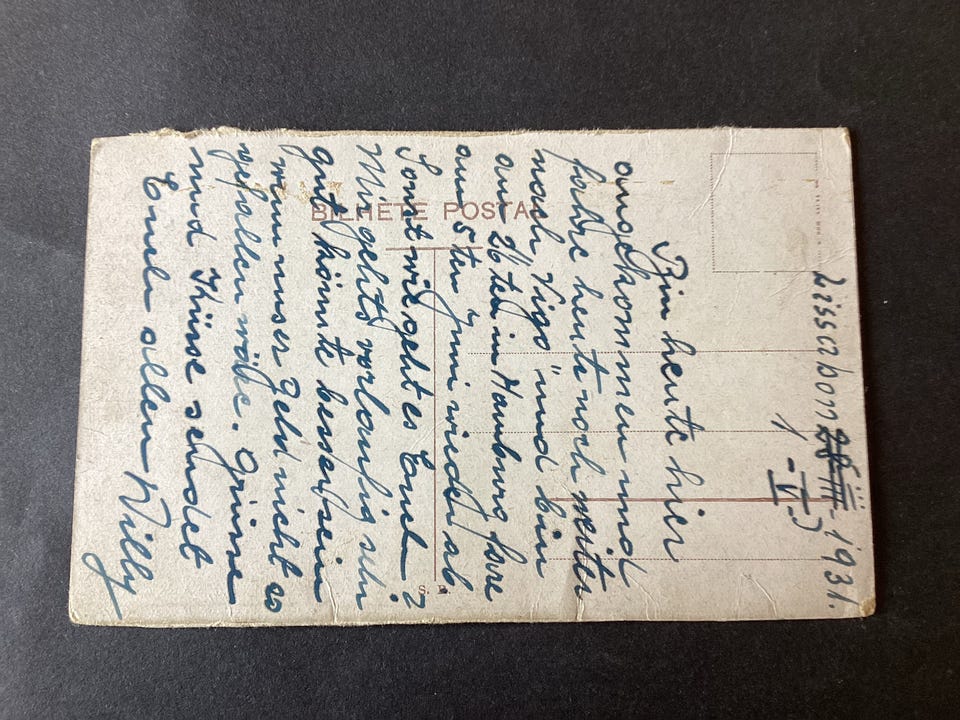 Lissabon 28-III-1931.
1-V-)
Bin heute hier
angekommen und
fahre heute noch weiter
nach Vigo" und bin
am 26ten in Hamburg fare
am 5ten Juni wieder ab
Sonst wie geht es Euch?
Mir gehts vorläufig sehr
gut könnte besser sein
wenn unser Geld nicht so
gefallen wäre. Grüsse
und Küsse sendet
Euch allen Willy
BILHETE POSTAL
S. R.